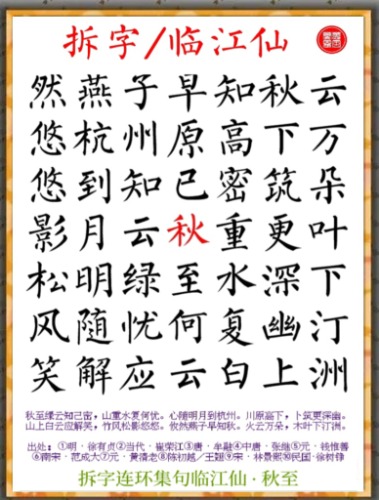 拆字/临江仙
然燕子早知秋云
悠杭州原高下万
悠到知已密筑朵
影月云秋重更叶
松明绿至水深下
风随忧何复幽汀
笑解应云白上洲
秋至绿云知己密，山重水复何忧。心随明月到杭州。川原高下，卜筑更深幽。
山上白云应解笑，竹风松影悠悠。攸然燕子早知秋。火云万朵，木叶下汀洲。
出处：①明·徐有贞②当代·崔荣江③唐·牟融④中唐·张继⑤元·钱惟善
⑥南宋·范成大⑦元·黄潘老⑧陈初越／王翃⑨宋·林景熙⑩民国·徐树铮
拆字连环集句临江仙·秋至